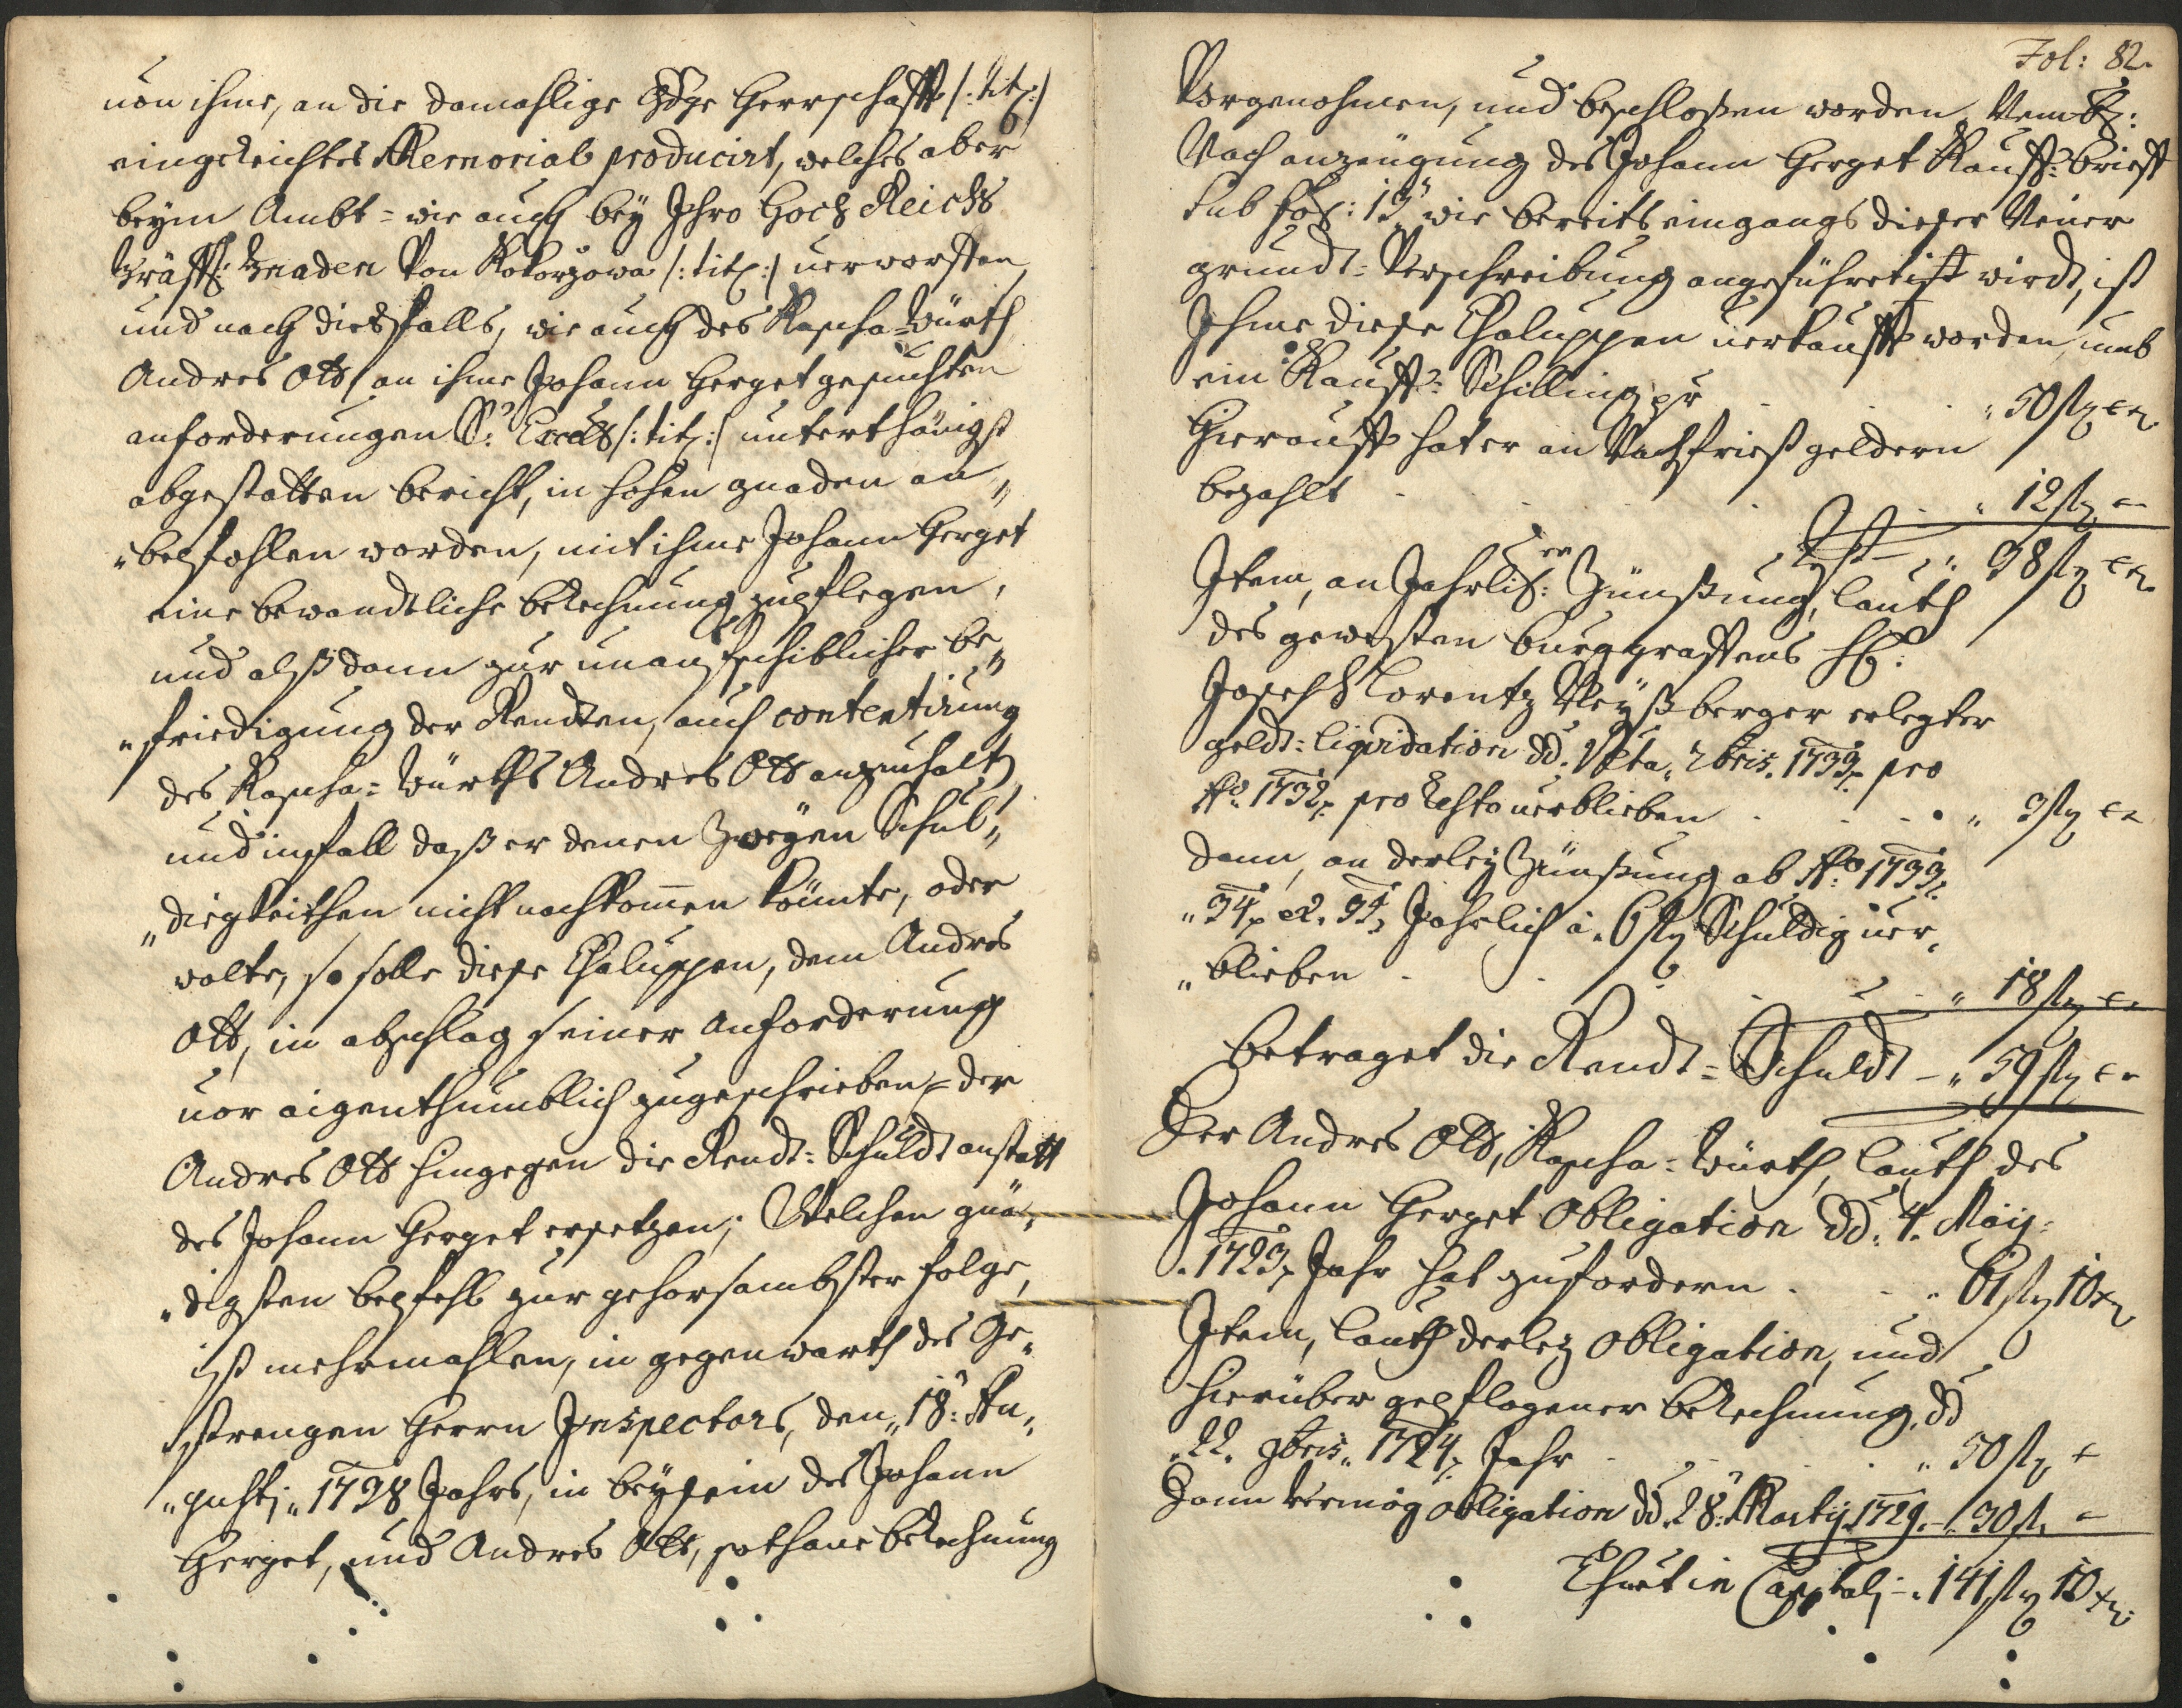 von ihme, an die damahlige Gdge Herrschafft /: tit: /
eingereichtes Memorial producirt, welches aber
beym Ambt= wie auch bey Ihro Hoch Reichs
Gräffl: Gnaden Von Kokorzowa /: tit: / verworffen,
und nach diesfalls, wie auch des Kascha=Würth
Andres Ott, an ihme Johann Herget gesuchten
anforderungen Sr: Excell /: tit: / unterthänigst
abgestatten bericht, in hohen gnaden an„
„befohlen worden, mit ihme Johann Herget
eine bewandtliche berechnung zupflegen,
und alßdann zur unaufschiblicher be„
„friedigung der Rendten, auch contentirung
des Kascha=Würths Andres Ott anzuhalt,
und imfall daß er denen Zweyen Schul„
„digkeithen nicht nachkomen könnte, oder
wolte, so solle diese Chaluppen, dem Andres
Ott, in abschlag seiner anforderung
vor aigenthumblich zugeschrieben, der
Andres Ott hingegen die Rendt=Schuldt anstatt
des Johann Herget ersetzen; Welchen gnä„
„digsten befehl zur gehorsambster folge,
ist mehrmahlen, in gegenwarth des Ge„
strengen Herrn Inspectors, den „18: Au„
„gusti „1738 Jahrs, in beysein des Johann
Herget, und Andres Ott, sothane berechnung
Fol: 82.
Vorgenohmen, und beschloßen worden. Nembl:
Nach anzeugung des Johann Herget Kauff=brieff
sub fol: 13 wie bereits eingangs dieser Neuer
grundt=Verschreibung angeführet ist wirdt, ist
Ihme diese Chaluppen verkaufft worden, umb
ein Kauff=Schilling pr . . „ 50 fl xr
Hierauff hat er an Nachfrist geldern
bezahlt . . . „ 12 fl –
Rest – „ 38 fl xr
Item, an Jahrlich:en Zünßung, lauth
des gewesten burggraffens H:
Joseph Lorentz Weyßberger erlegter
geldt=liquidation dd. Ulta „ xbris. 1733. pro
Ao. 1732. pro Resto verblieben . . . „ 3 fl xr
Dann, an derley Zünßung ab Ao: 1733.
„34. et. 35. Jahrlich à. 6 fl Schuldig ver„
„blieben . . . „ 18 fl xr
Betraget die Rendt=Schuldt – „ 59 fl xr
Der Andres Ott, Kascha=Würth, lauth des
Johann Herget Obligation dd. 4. Maij:
„1723. Jahr hat zufordern . . „ 61 fl 10 xr
Item, lauth derley Obligation, und
hierüber gepflogener berechnung, dd
„22. 9bris „ 1724. Jahr . . „ 50 fl –
Dann Vermög obligation dd. 28: Martij 1729. – „ 30 fl –
Thuet in Capitali – „ 141 fl 10 xr